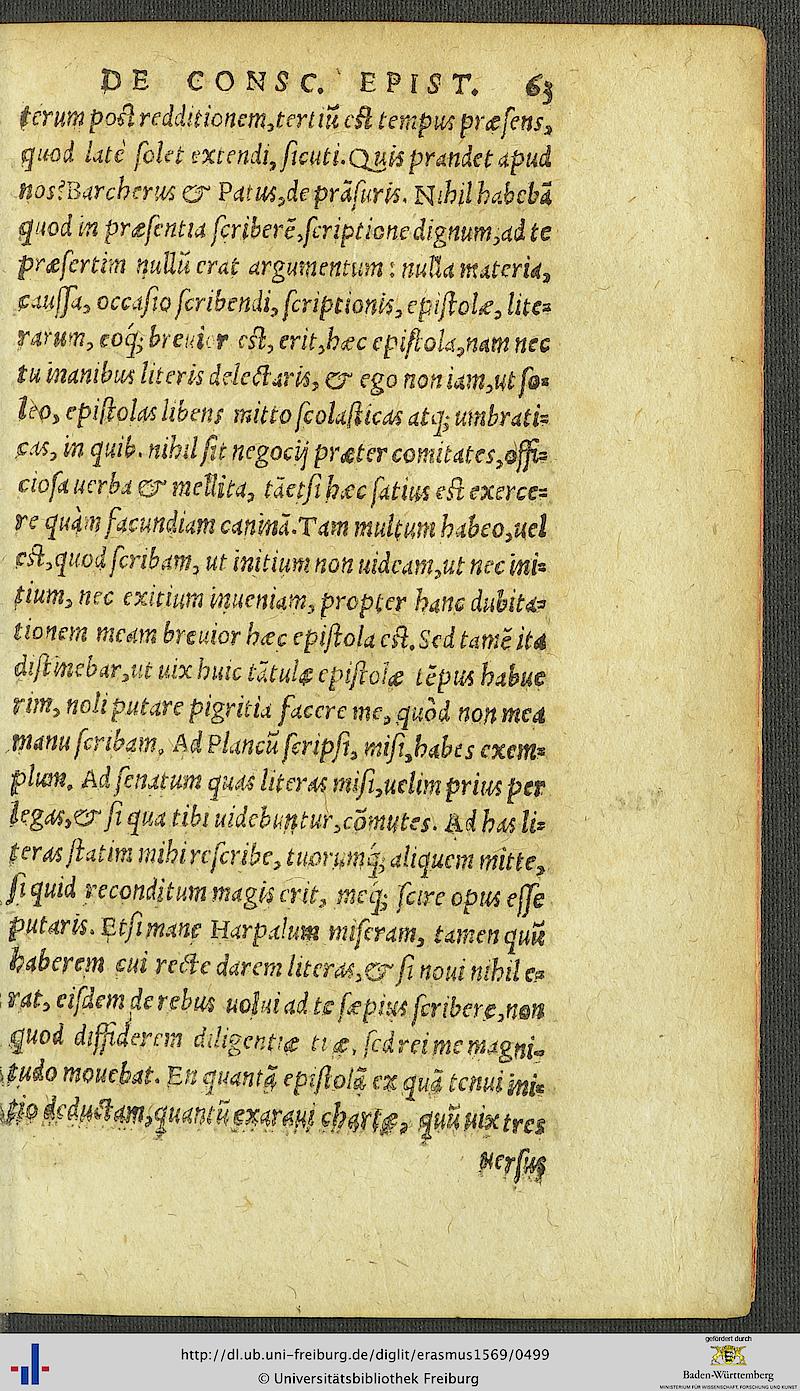 DE CONSC. EPIST. 63
terum post redditionem, tertiũ est tempus præsens,
quod latè solet extendi, sicuti. Quis prandet apud
nos? Barcherus & Patus, de prãsuris. Nihil habebã
quod in præsentia scriberẽ, scriptione dignum, ad te
præsertim nullũ erat argumentum: nulla materia,
caussa, occasio scribendi, scriptionis, epistolæ, lite-
rarum, eoq́; breuior est, erit, hæc epistola, nam nec
tu inanibus literis delectaris, & ego non iam, ut so-
leo, epistolas libens mitto scolasticas atq; umbrati-
cas, in quib. nihil sit negocij præter comitates, offi-
ciosa uerba & mellita, tãetsi hæc satius est exerce-
re quàm facundiam caninã. Tam multum habeo, uel
est, quod scribam, ut initium non uideam, ut nec ini-
tium, nec exitium inueniam, propter hanc dubita-
tionem meam breuior hæc epistola est. Sed tamẽ ita
distinebar, ut uix huic tãtulæ epistolæ tẽpus habue
rim, noli putare pigritia facere me, quòd non mea
manu scribam. Ad Plancũ scripsi, misi, habes exem-
plum. Ad senatum quas literas misi, uelim prius per
legas, & si qua tibi uidebuntur, cõmutes. Ad has li-
teras statim mihi rescribe, tuorumq́; aliquem mitte,
si quid reconditum magis erit, meq́; scire opus esse
putaris. Etsi mane Harpalum miseram, tamen quũ
haberem cui recte darem literas, & si noui nihil e-
rat, eisdem de rebus uolui ad te sæpius scribere, non
quod diffiderem diligentiæ tiæ, sed rei me magni-
tudo mouebat. En quantã epistolã ex quã tenui ini-
tio deductam, quantũ exaraui chartæ, quũ uix tres
uersus
http://dl.ub.uni-freiburg.de/diglit/erasmus1569/0499
© Universitätsbibliothek Freiburg
gefördert durch
Baden-Württemberg
MINISTERIUM FÜR WISSENSCHAFT, FORSCHUNG UND KUNST